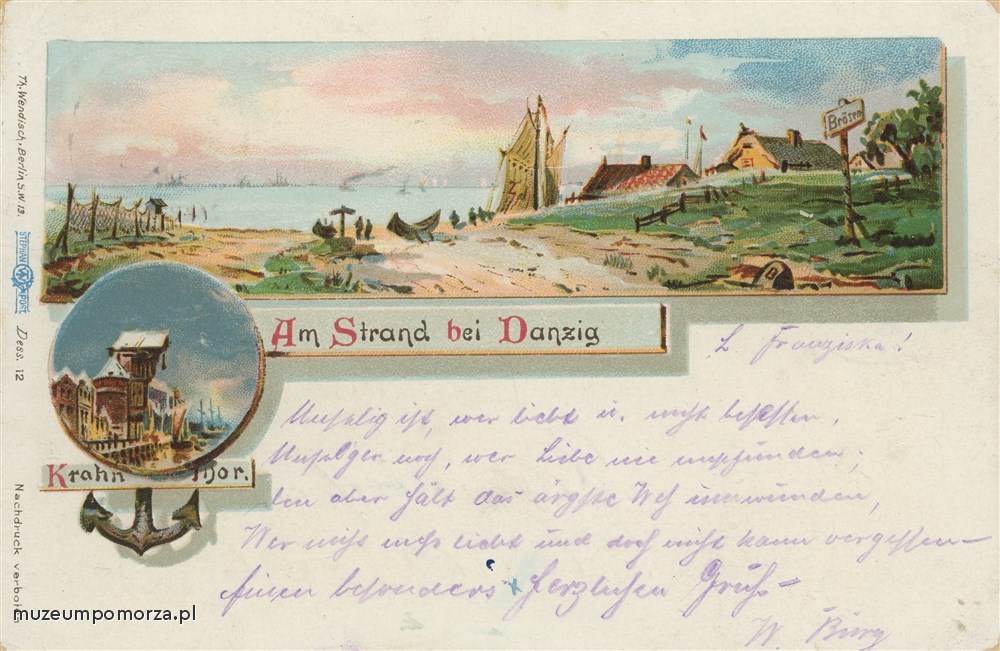 Brösen
Am Strand bei Danzig
Krahn Thor.
Th. Wendisch, Berlin S.W. 13.
STEPHAN
POST
Dess. 12
Nachdruck verboten
L Franziska!
Unselig ist, wer liebt u. nicht besessen,
Unsel'ger noch, wer Liebe nie empfunden;
Den aber hält das ärgste Weh umwunden,
Wer nicht mehr liebt und doch nicht kann vergessen –
Einen besonders herzlichen Gruß –
W. Burg
muzeumpomorza.pl